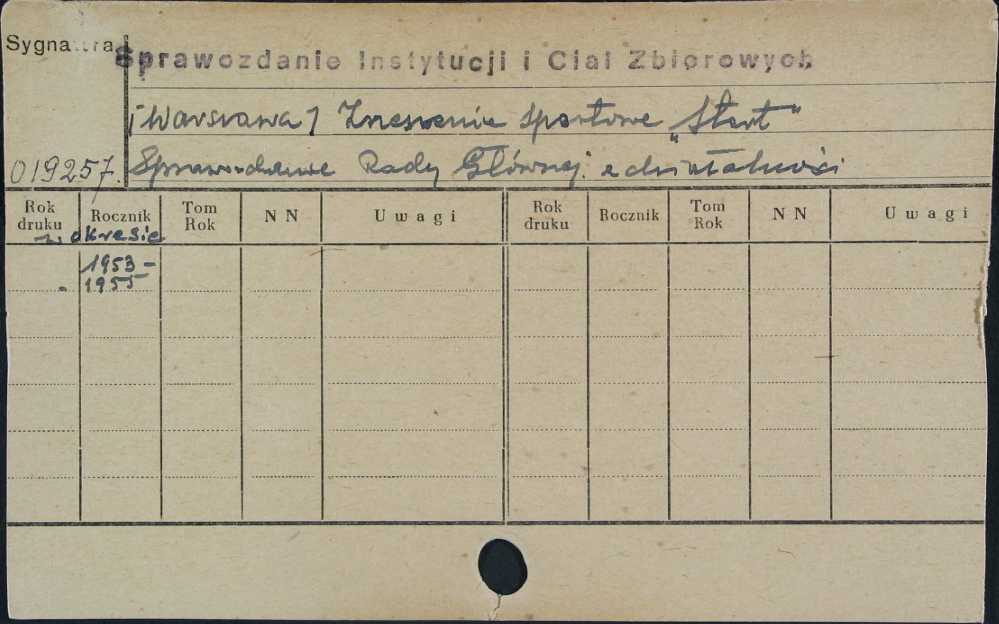 Sygnatura
Sprawozdanie Instytucji i Ciał Zbiorowych
[Warszawa] Zrzeszenie Sportowe „Start"
019257. Sprawozdanie Rady Głównej z działalności
Rok druku Rocznik Tom Rok NN Uwagi Rok druku Rocznik Tom Rok NN Uwagi
w okresie
1953-
1955